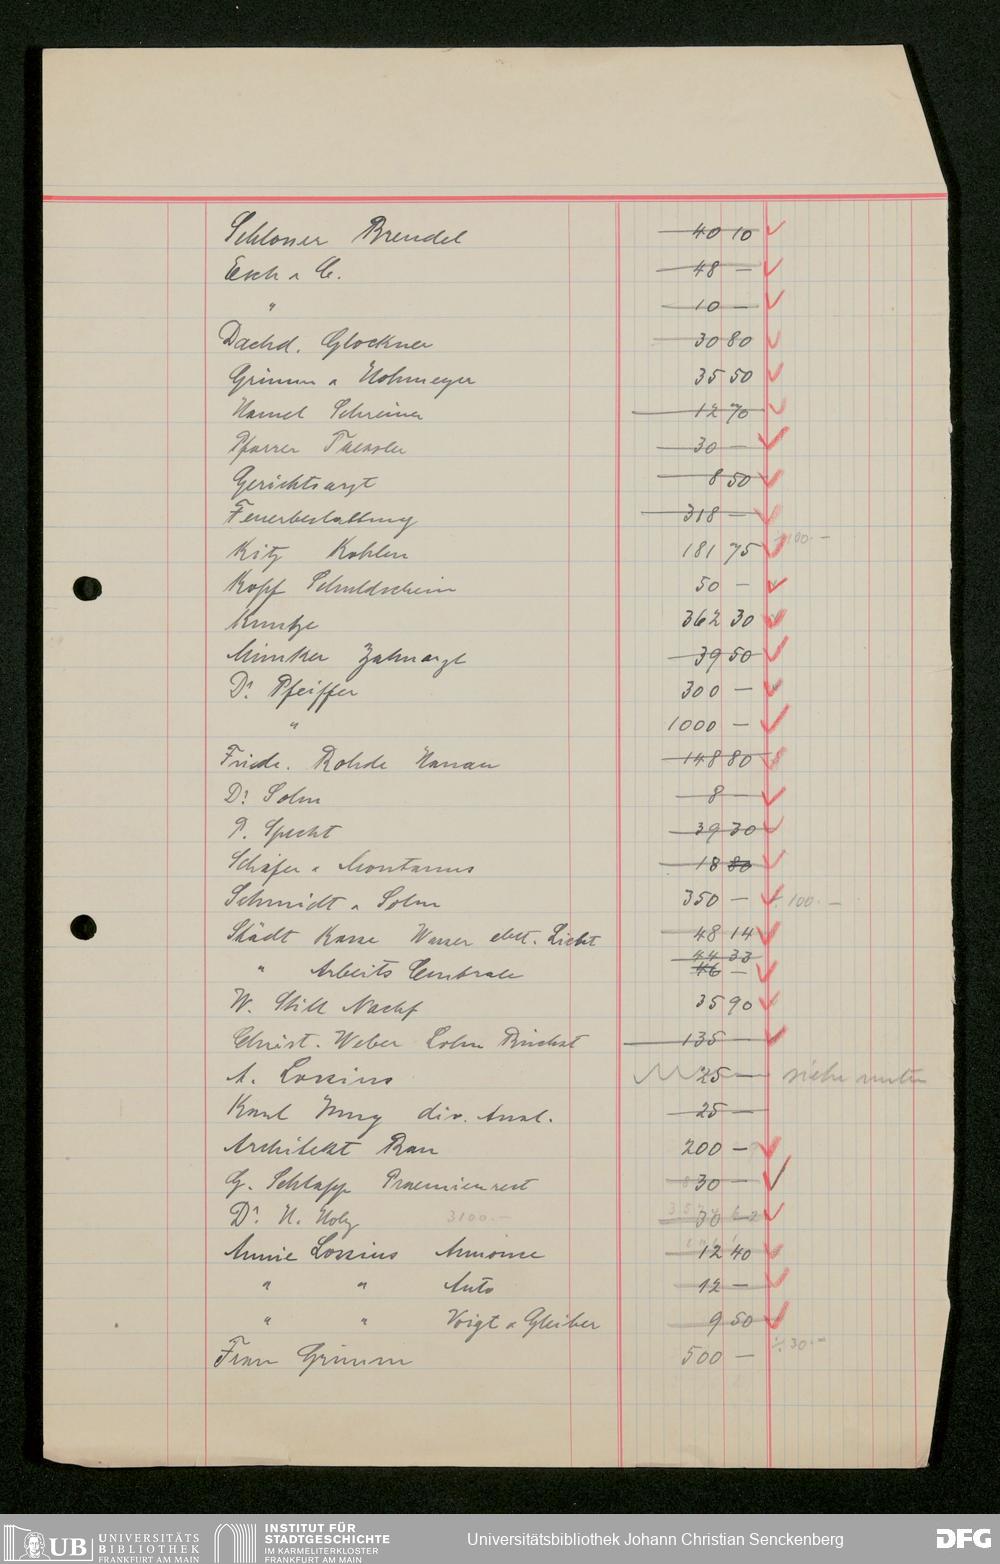 Schlosser Brendel 40 10
Esch & Co. 48 —
" 10 —
Dachd. Glockner 30 80
Grimm & Hohmeyer 35 50
Hamel Schreiner 12 70
Pfarrer Taessler 30 —
Gerichtsarzt 8 50
Feuerbestattung 318 —
Kitz Kohlen 181 75 ÷ 100.—
Kopf Schuldschein 50 —
Kuntze 362 30
Münker Zahnarzt 39 50
Dr. Pfeiffer 300 —
" 1000 —
Friedr. Rohde Hanau 148 80
Dr. Sohn 8 —
P. Specht 39 30
Schäfer & Montanus 18 80
Schmidt & Sohn 350 — ÷ 100.—
Städt Kasse Wasser elect. Licht 48 14
44 33
" Arbeits Centrale 46 —
W. Still Nachf 35 90
Christ. Weber Lohn Rückst 135 —
A. Lossius 25 — siehe unten
Karl Jung div. Ausl. 25 —
Architekt Rau 200 —
G. Schlapp Praemienrest 30 —
Dr. H. Holz 3100.— 30 —
Annie Lossius Annonce 12 40
" " Auto 12 —
" " Voigt & Gleiber 9 50
Frau Grimm 500 — ÷ 30.—
UB UNIVERSITÄTS BIBLIOTHEK FRANKFURT AM MAIN
INSTITUT FÜR STADTGESCHICHTE IM KARMELITERKLOSTER FRANKFURT AM MAIN
Universitätsbibliothek Johann Christian Senckenberg
DFG